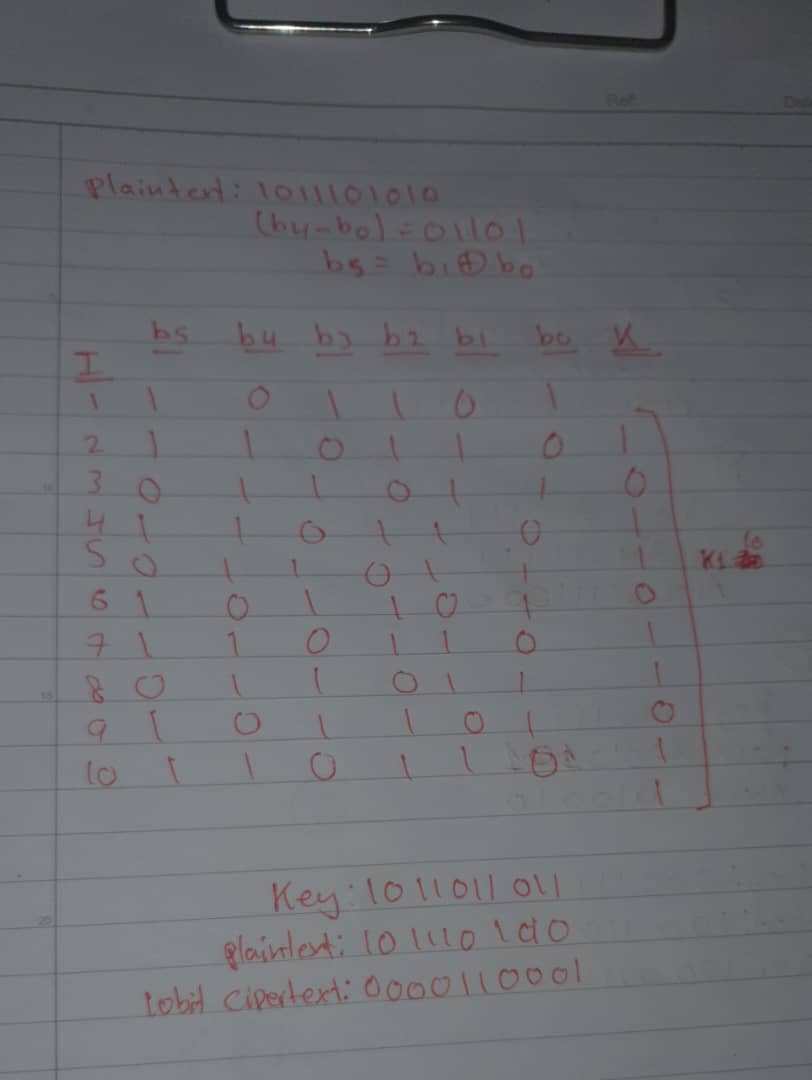 Ref:
plaintext: 1011101010
(b4-b0) = 01101
b5 = b1⊕b0
I b5 b4 b3 b2 b1 b0 K
1 1 0 1 1 0 1
2 1 1 0 1 1 0 1
3 0 1 1 0 1 1 0
4 1 1 0 1 1 0 1
5 0 1 1 0 1 1 1
6 1 0 1 1 0 1 0
7 1 1 0 1 1 0 1
8 0 1 1 0 1 1 1
9 1 0 1 1 0 1 0
10 1 1 0 1 1 0 1
1
Key: 1011011011
10bit cipertext: 0000110001